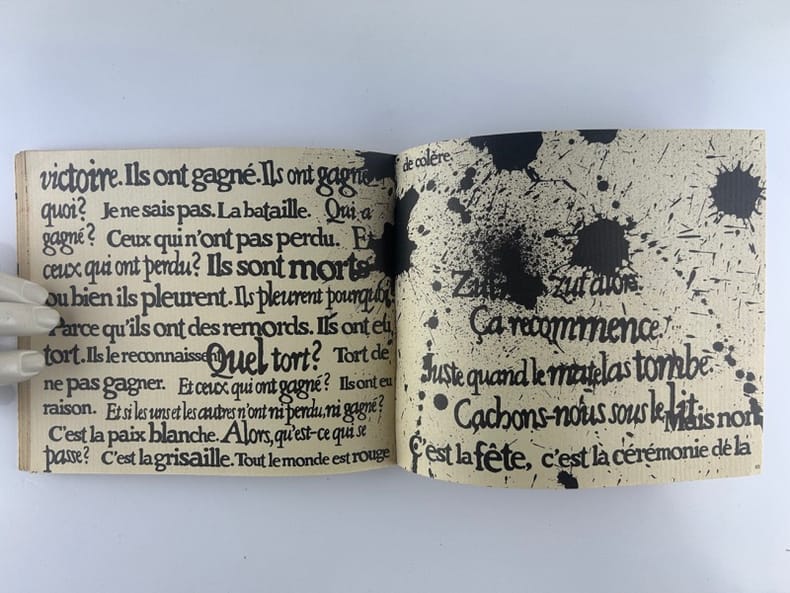 victoire. Ils ont gagné. Ils ont gagné
quoi? Je ne sais pas. La bataille. Qui a
gagné? Ceux qui n'ont pas perdu. Et
ceux qui ont perdu? Ils sont morts
ou bien ils pleurent. Ils pleurent pourquoi?
Parce qu'ils ont des remords. Ils ont eu
tort. Ils le reconnaissent Quel tort? Tort de
ne pas gagner. Et ceux qui ont gagné? Ils ont eu
raison. Et si les uns et les autres n'ont ni perdu, ni gagné?
C'est la paix blanche. Alors, qu'est-ce qui se
passe? C'est la grisaille. Tout le monde est rouge
de colère.
Zut zut alors
Ça recommence
Juste quand le matelas tombe.
Cachons-nous sous le lit. Mais non
C'est la fête, c'est la cérémonie de la